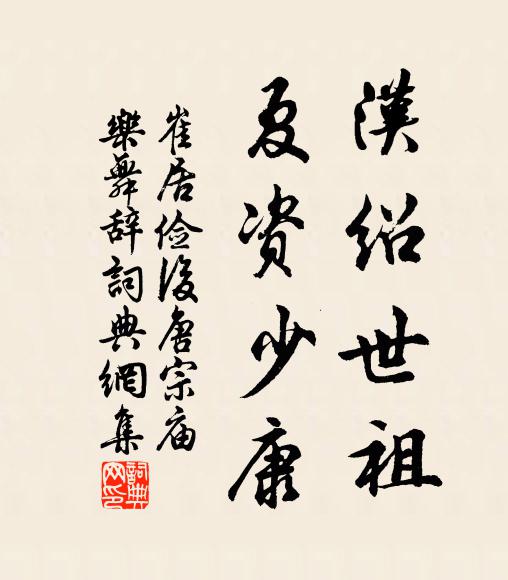 漢紹世祖
夏資少康
崔居儉後唐宗庙
樂舞辞詞典網集
詞典网印